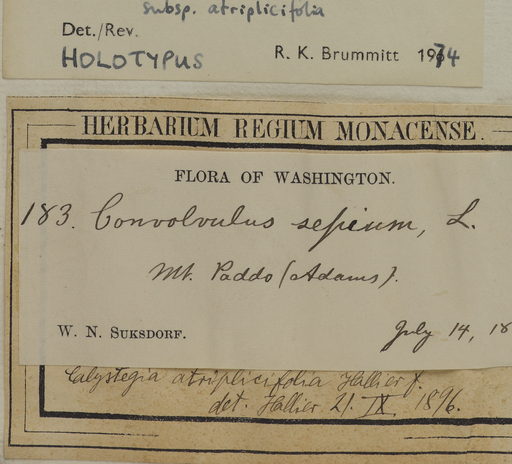 subsp. atriplicifolia
Det./Rev.
HOLOTYPUS
R. K. Brummitt 1974
HERBARIUM REGIUM MONACENSE.
FLORA OF WASHINGTON.
183. Convolvulus sepium, L.
Mt. Paddo (Adams).
W. N. SUKSDORF.
July 14, 18
Calystegia atriplicifolia Hallier f.
det. Hallier 21. IX. 1896.